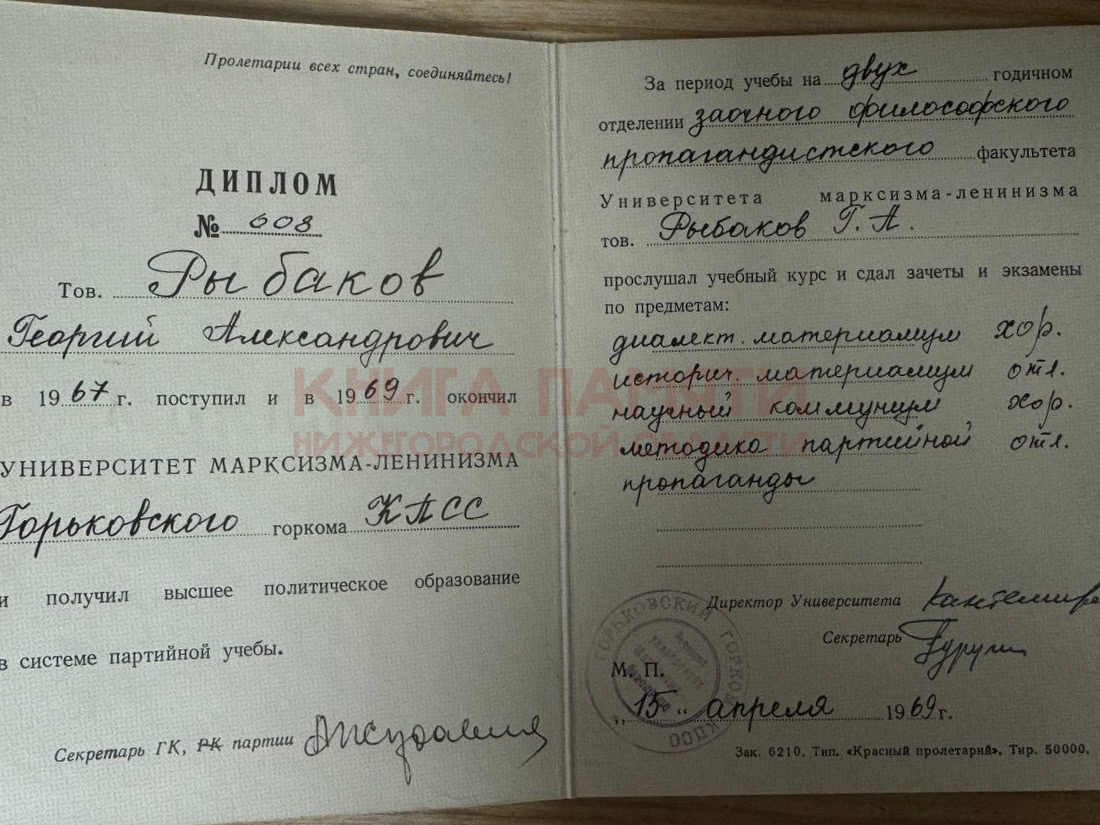 Пролетарии всех стран, соединяйтесь!
ДИПЛОМ
№ 608
Тов. Рыбаков
Георгий Александрович
в 1967 г. поступил и в 1969 г. окончил
УНИВЕРСИТЕТ МАРКСИЗМА-ЛЕНИНИЗМА
Горьковского горкома КПСС
и получил высшее политическое образование
в системе партийной учебы.
Секретарь ГК, РК партии
За период учебы на двух годичном
отделении заочного философского
пропагандистского факультета
Университета марксизма-ленинизма
тов. Рыбаков Г. А.
прослушал учебный курс и сдал зачеты и экзамены
по предметам:
диалект. материализм хор.
историч. материализм отл.
научный коммунизм хор.
методика партийной отл.
пропаганды
Директор Университета
Секретарь
М. П.
„15“ апреля 1969 г.
Зак. 6210. Тип. «Красный пролетарий». Тир. 50000.
ГОРЬКОВСКИЙ ГОРКОМ КПСС
КНИГА ПАМЯТИ
НИЖЕГОРОДСКОЙ ОБЛАСТИ